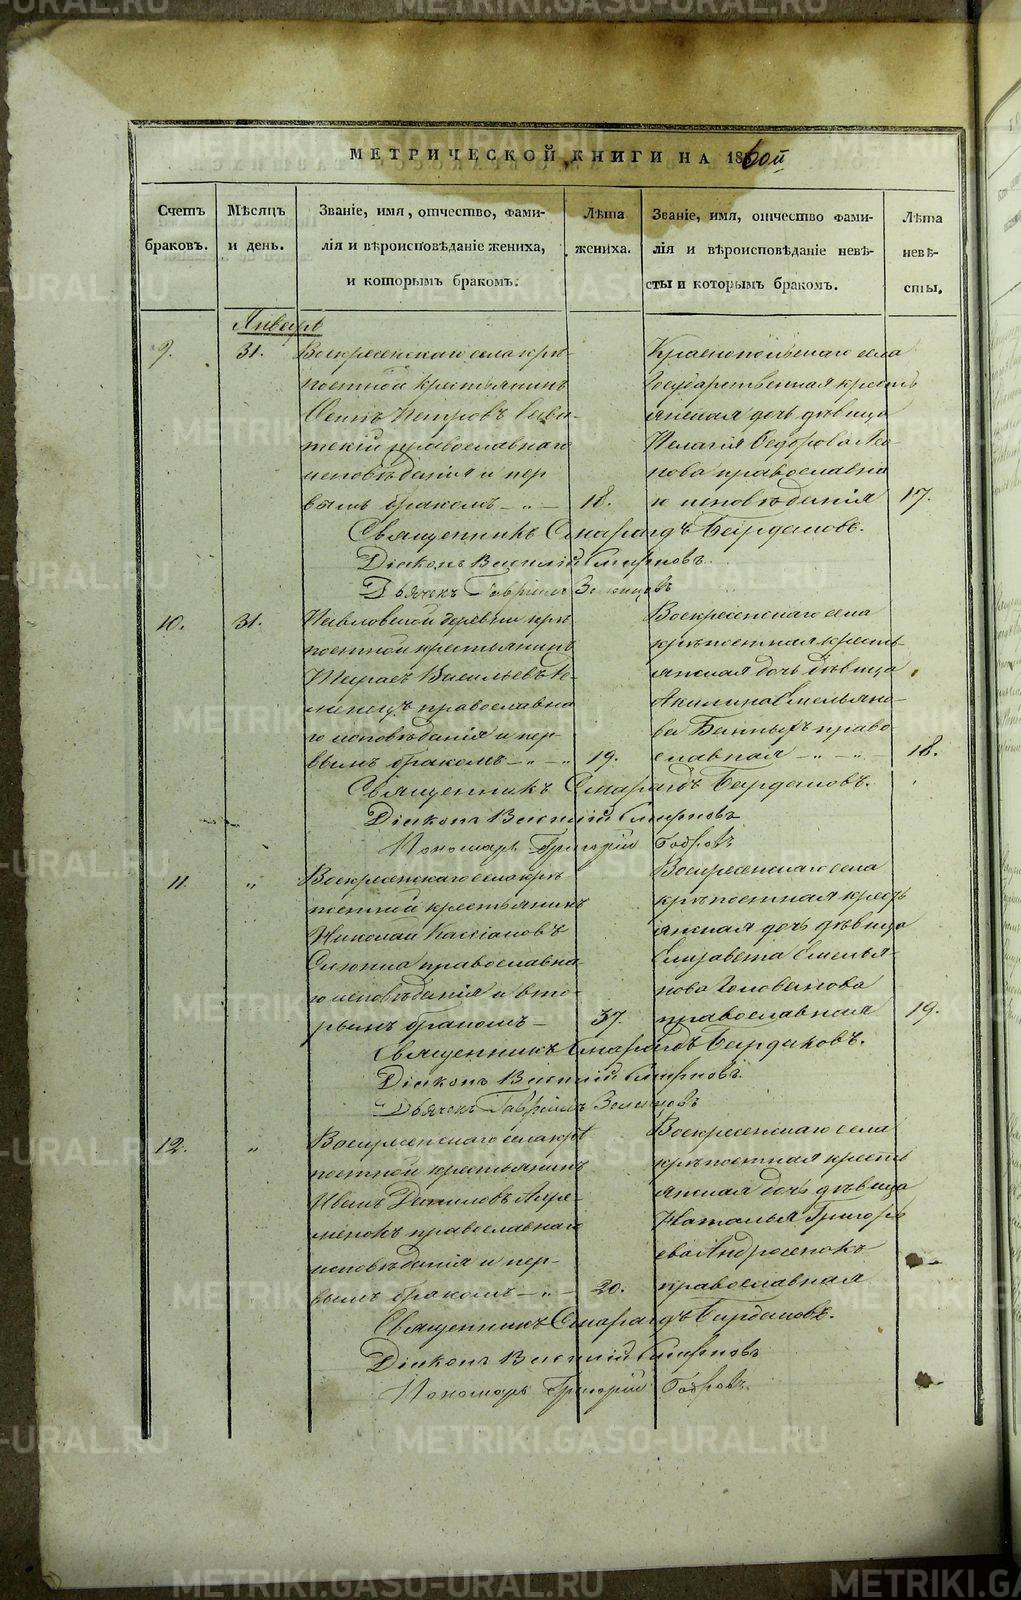 МЕТРИЧЕСКОЙ КНИГИ НА 1860й
Счетъ браковъ.
Мѣсяцъ и день.
Званіе, имя, отчество, фами-
лія и вѣроисповѣданіе жениха,
и которымъ бракомъ.
Лѣта жениха.
Званіе, имя, отчество фами-
лія и вѣроисповѣданіе невѣ-
сты и которымъ бракомъ.
Лѣта невѣ-
сты.
Январь
9.
31.
Воскресенскаго села крѣ-
постной крестьянинъ
Петровъ
православнаго
исповѣданія и пер
вымъ бракомъ — „ —
18.
Краснопольскаго села
государственная кресть
янская дочь дѣвица
Пелагія Ѳедорова
православна
го исповѣданія
17.
Священникъ Смарагдъ Бирдановъ.
Діаконъ Василій Смирновъ
Дьячекъ Гавріилъ Земляновъ
10.
31.
Павловской деревни крѣ
постной крестьянинъ
Тарасъ Васильевъ
православна
го исповѣданія и пер
вымъ бракомъ — „ — „
19.
Воскресенскаго села
крѣпостная кресть
янская дочь дѣвица
Акилина Емельяно-
ва Банныхъ право
славная — „ — „ —
18.
Священникъ Смарагдъ Бирдановъ.
Діаконъ Василій Смирновъ
Пономарь Григорій Бобровъ
11.
„
Воскресенскаго села крѣ
постной крестьянинъ
Николай Кассіановъ
православна
го исповѣданія и вто-
рымъ бракомъ —
37.
Воскресенскаго села
крѣпостная кресть
янская дочь дѣвица
Елизавета Емелья-
нова Голованова
православная
19.
Священникъ Смарагдъ Бирдановъ.
Діаконъ Василій Смирновъ
Дьячекъ Гавріилъ Земляновъ
12.
„
Воскресенскаго села крѣ
постной крестьянинъ
Иванъ Даниловъ Ахре-
менокъ православнаго
исповѣданія и пер-
вымъ бракомъ — „ —
20.
Воскресенскаго села
крѣпостная кресть
янская дочь дѣвица
Наталья Григорь
ева Андросенокъ
православная
Священникъ Смарагдъ Бирдановъ.
Діаконъ Василій Смирновъ
Пономарь Григорій Бобровъ.
METRIKI.GASO-URAL.RU